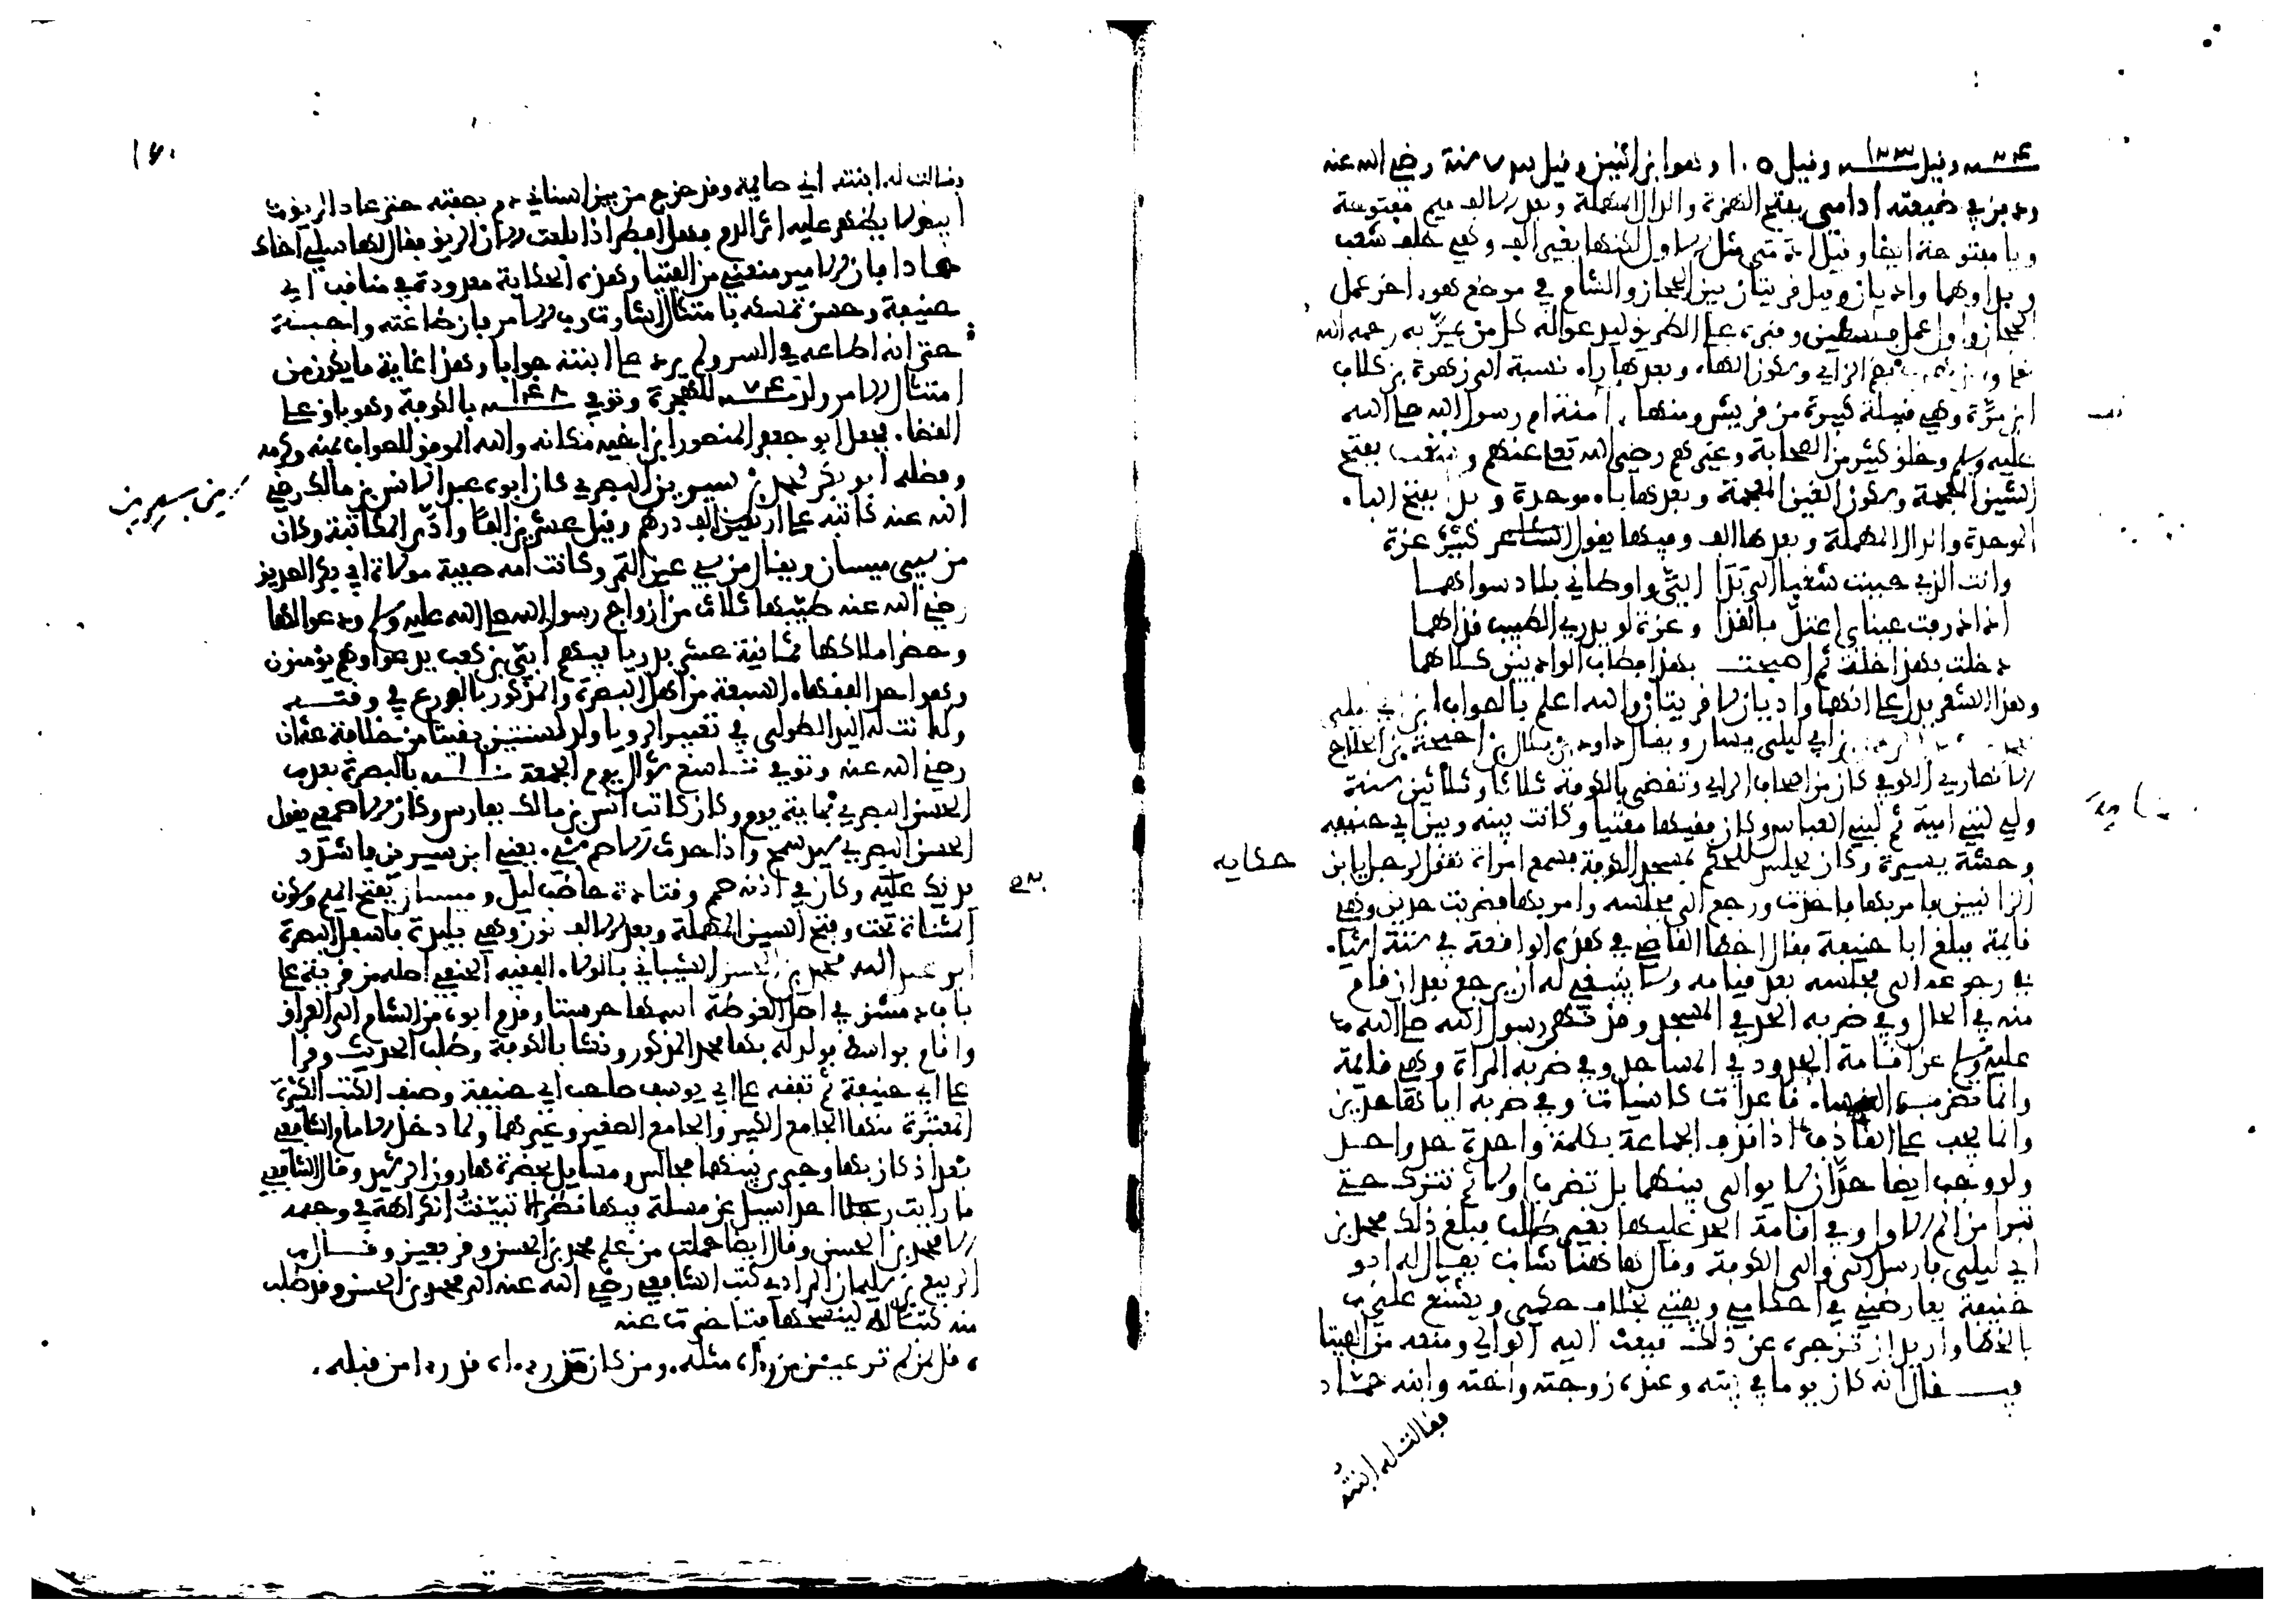 ١٢٤ وقيل ١٢٣ وقيل ١٢٥ وهو ابن اثنين وقيل ٧٣ سنة رضي الله عنه
ودفن في ضيعته ادامى بفتح الهمزة والدال المهملة وبعد الالف ميم مفتوحة
ويا مفتوحة ايضا وقيل ادمى مثل الاول لكنها بغير الف وهي خلف شغب
وبدا وهما واديان وقيل قريتان بين الحجاز والشام في موضع هو اخر عمل
الحجاز واول عمل فلسطين وقبره على الطريق ليدعو له كل من يمر به رحمه الله
الزاي وسكون الهاء وبعدها راء نسبة الى زهرة بن كلاب
ابن مرة وهي قبيلة كبيرة من قريش ومنها امنة ام رسول الله صلى الله
عليه وسلم وخلق كثير من الصحابة وغيرهم رضي الله تعالى عنهم وشغب بفتح
الشين المعجمة وسكون الغين المعجمة وبعدها باء موحدة وبدا بفتح الباء
الموحدة والدال المهملة وبعدها الف وفيها يقول الشاعر كثير عزة
وانت الذي حببت شغبا الى بدا الي واوطاني بلاد سواهما
اذا ذرفت عيناي اعتل بالقذا وعزة لو يدري الطبيب قذاهما
دخلت بهذا خلة ثم اصبحت بهذا فطاب الواديين كلاهما
وهذا الشعر يدل على انهما واديان لا قريتان والله اعلم بالصواب ابن ابي ليلى
بن ابي ليلى يسار ويقال داود بن بلال بن احيحة بن الجلاح
الانصاري الكوفي كان من اصحاب الراي وتقضى بالكوفة ثلاثا وثلاثين سنة
ولي لبني امية ثم لبني العباس وكان فقيها مفتيا وكانت بينه وبين ابي حنيفة
وحشة يسيرة وكان يجلس للحكم بمسجد الكوفة فسمع امراة تقول لرجل يا ابن
حكاية
الزانيين فامر بها فاخذت ورجع الى مجلسه وامر بها فضربت حدين وهي
قائمة فبلغ ابا حنيفة فقال اخطا القاضي في هذه الواقعة في ستة اشيا
في رجوعه الى مجلسه بعد قيامه ولا ينبغي له ان يرجع بعد ان قام
منه في الحال وفي ضربه الحد في المسجد وقد نهى رسول الله صلى الله
عليه وسلم عن اقامة الحدود في المساجد وفي ضربه المراة وهي قائمة
وانما تضرب النساء قاعدات كاسيات وفي ضربه اياها حدين
وانما يجب على القاذف اذا قذف الجماعة بكلمة واحدة حد واحد
ولو وجب ايضا حدان لا يوالى بينهما بل تضرب اولا ثم تترك حتى
تبرا من الم الاول وفي اقامة الحد عليها بغير طلب فبلغ ذلك محمد بن
ابي ليلى فارسل الى والى الكوفة وقال هاهنا شاب يقال له ابو
حنيفة يعارضني في احكامي ويفتي بخلاف حكمي ويشنع علي
بالخطا واريد ان تزجره عن ذلك فبعث اليه الوالي ومنعه من الفتيا
فيقال انه كان يوما في بيته وعنده زوجته واخته وابنه حماد
فقالت له ابنته
١٦٠
وقالت له ابنته اني صائمة وقد خرج من بين اسناني دم بصقته حتى عاد الريق
ابيض لا يظهر عليه اثر الدم فهل افطر اذا بلعت الان الريق فقال لها سلي اخاك
حمادا فان الامير منعني من الفتيا وهذه الحكاية معدودة في مناقب ابي
حنيفة وحسن تمسكه بامتثال اشارة رب الامر فان طاعته واجبة
حتى انه اطاعه في السر ولم يرد على ابنته جوابا وهذا غاية ما يكون من
امتثال الامر ولد سنة ٧٤ للهجرة وتوفي سنة ١٤٨ بالكوفة وهو باق على
القضاء فجعل ابو جعفر المنصور ابن اخيه مكانه والله الموفق للصواب بمنه وكرمه
وفضله ابو بكر محمد بن سيرين البصري كان ابوه عبدا لانس بن مالك رضي
ابن سيرين
الله عنه كاتبه على اربعين الف درهم وقيل عشرين الفا وادى المكاتبة وكان
من سبي ميسان ويقال من سبي عين التمر وكانت امه صفية مولاة ابي بكر الصديق
رضي الله عنه طيبها ثلاث من ازواج رسول الله صلى الله عليه وسلم ودعوا لها
وحضر املاكها ثمانية عشر بدريا فيهم ابي بن كعب يدعو وهم يؤمنون
وهو احد الفقهاء السبعة من اهل البصرة والمذكور بالورع في وقته
وكانت له اليد الطولى في تعبير الرويا ولد لسنتين بقيتا من خلافة عثمان
رضي الله عنه وتوفي تاسع شوال يوم الجمعة سنة ١١٠ بالبصرة بعد
الحسن البصري بماية يوم وكان كاتب انس بن مالك بفارس وكان الاصمعي يقول
الحسن البصري سيد سمح واذا حدث الاصم بشيء يعني ابن سيرين فاشدد
يديك عليه وكان في اذنه صمم وقتادة حاطب ليل وميسان بفتح الميم وسكون
المثناة تحت وفتح السين المهملة وبعد الالف نون وهي بليدة باسفل البصرة
ابو عبد الله محمد بن الحسن الشيباني بالولاء الفقيه الحنفي اصله من قرية على
باب دمشق في اصل الغوطة اسمها حرستا وقدم ابوه من الشام الى العراق
واقام بواسط فولد له بها محمد المذكور ونشا بالكوفة وطلب الحديث وقرا
على ابي حنيفة ثم تفقه على ابي يوسف صاحب ابي حنيفة وصنف الكتب الكثيرة
المعتبرة منها الجامع الكبير والجامع الصغير وغيرهما ولما دخل الامام الشافعي
بغداد كان بها وجرى بينهما مجالس ومسايل بحضرة هارون الرشيد وقال الشافعي
ما رايت رجلا احدا سيل عن مسلة فيها نظر الا تبينت الكراهة في وجهه
الا محمد بن الحسن وقال ايضا حملت من علم محمد بن الحسن وقر بعير وقال
الربيع بن سليمان المرادي كتب الشافعي رضي الله عنه الى محمد بن الحسن وقد طلب
منه كتبا له لينسخها فتاخرت عنه
قل لمن لم تر عين من راه مثله ومن كان من راه قد راى من قبله